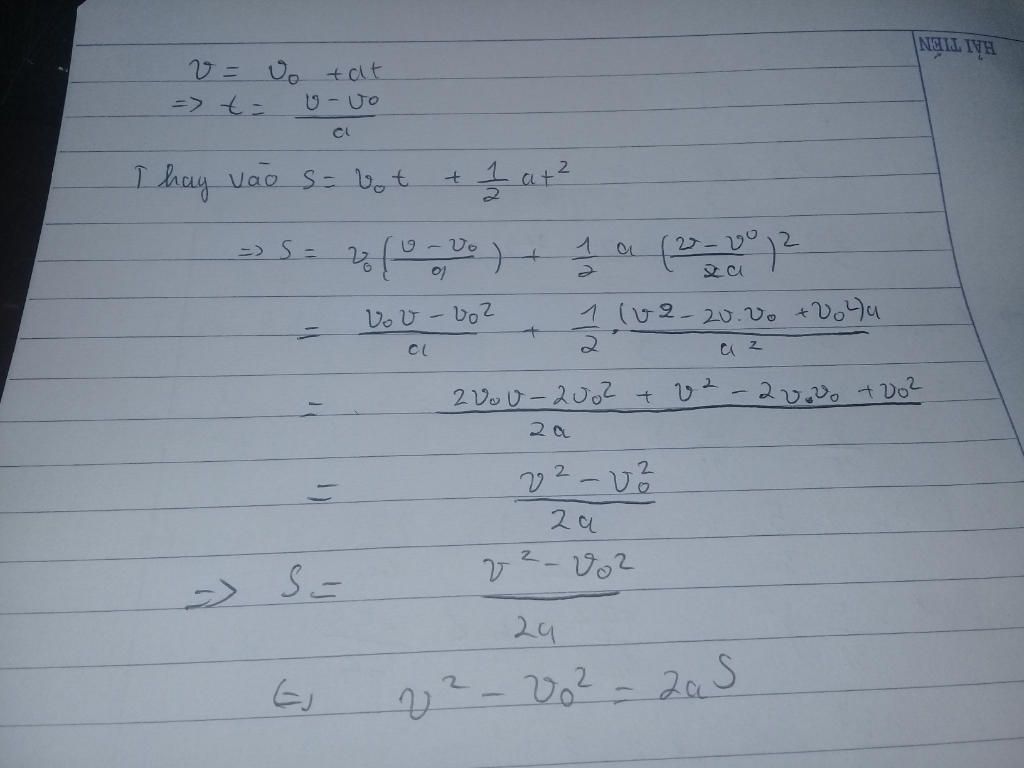 HẢI TIẾN
v = v₀ + at
=> t = (v - v₀)/a
Thay vāo S = v₀t + 1/2 at²
=> S = v₀((v - v₀)/a) + 1/2 a ((v - v⁰)/2a)²
= (v₀v - v₀²)/a + 1/2 . ((v² - 2v.v₀ + v₀²)a)/a²
= (2v₀v - 2v₀² + v² - 2v.v₀ + v₀²)/2a
= (v² - v₀²)/2a
=> S = (v² - v₀²)/2a
(=) v² - v₀² = 2aS